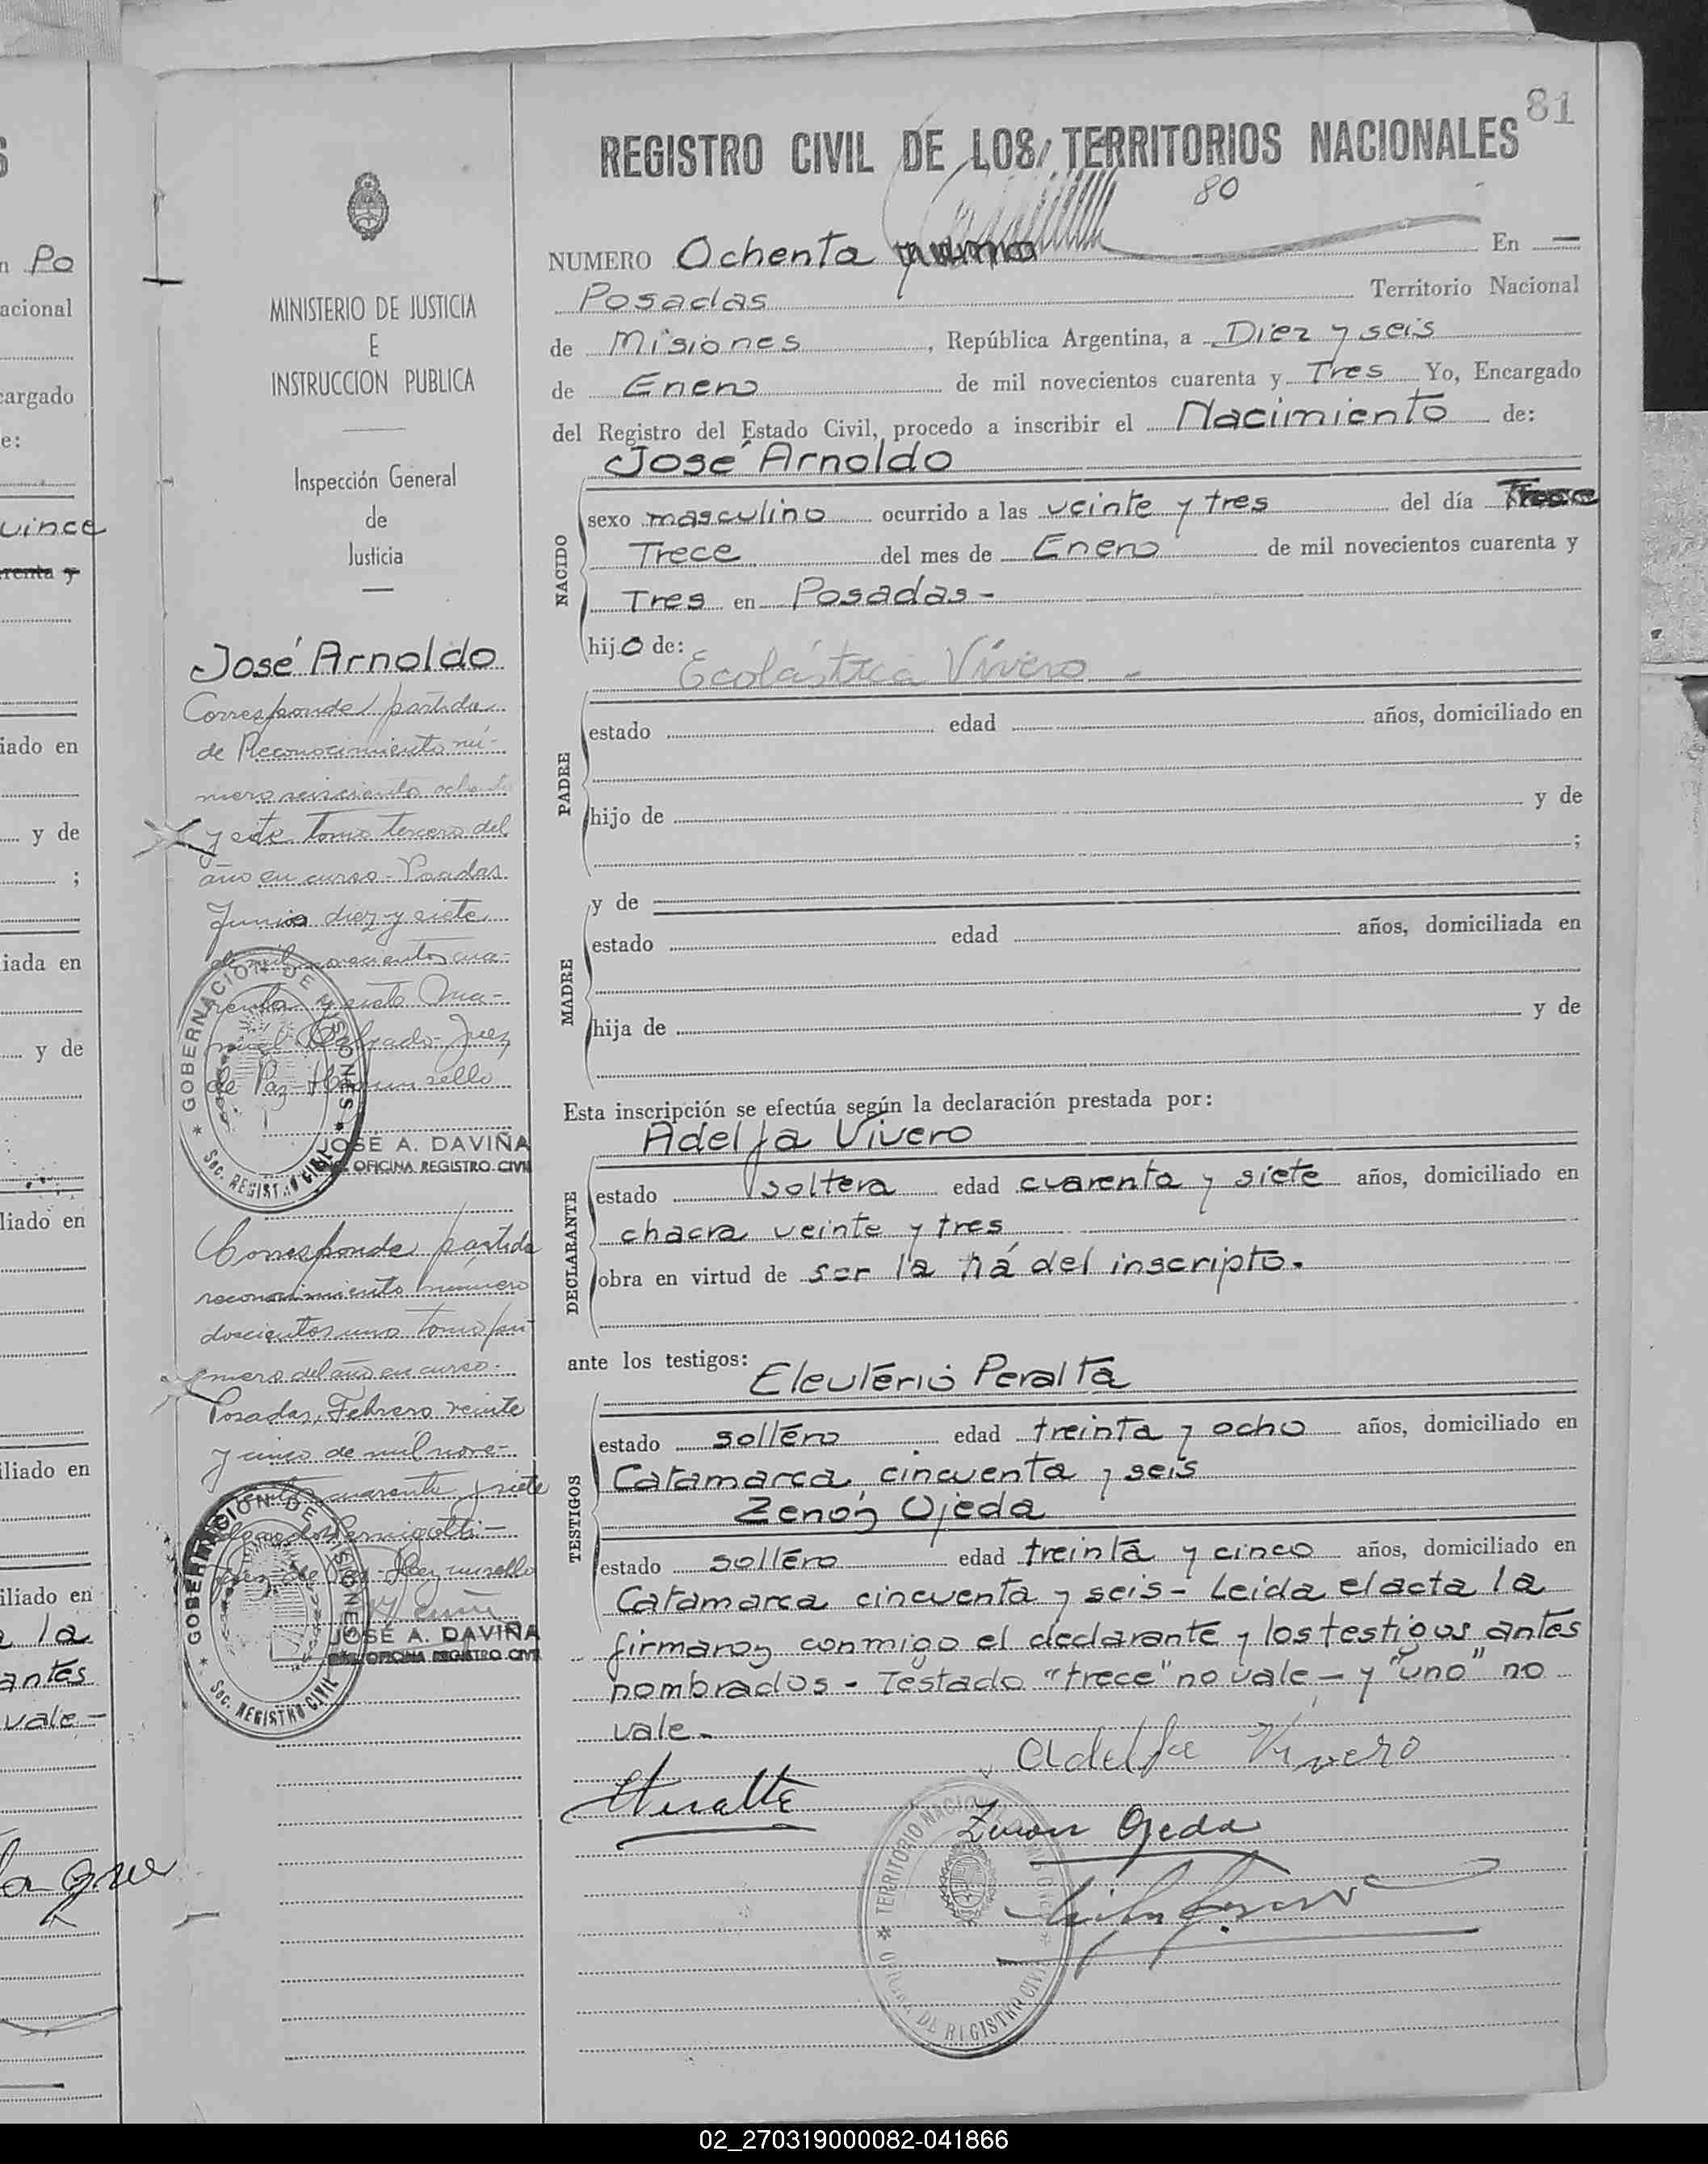 81
REGISTRO CIVIL DE LOS TERRITORIOS NACIONALES
80
NUMERO Ochenta y uno En —
Posadas Territorio Nacional
de Misiones, República Argentina, a Diez y seis
de Enero de mil novecientos cuarenta y Tres Yo, Encargado
del Registro del Estado Civil, procedo a inscribir el Nacimiento de:
José Arnoldo
NACIDO
sexo masculino ocurrido a las veinte y tres del día Trece
Trece del mes de Enero de mil novecientos cuarenta y
Tres en Posadas -
hijo de:
Ecolástica Vivero -
PADRE
estado edad años, domiciliado en
hijo de y de
;
y de
MADRE
estado edad años, domiciliada en
hija de y de
Esta inscripción se efectúa según la declaración prestada por:
Adelfa Vivero
DECLARANTE
estado soltera edad cuarenta y siete años, domiciliado en
chacra veinte y tres
obra en virtud de ser la tía del inscripto.
ante los testigos:
Eleutério Peralta
TESTIGOS
estado soltéro edad treinta y ocho años, domiciliado en
Catamarca, cincuenta y seis
Zenón Ojeda
estado soltéro edad treinta y cinco años, domiciliado en
Catamarca cincuenta y seis - Leida el acta la
firmaron conmigo el declarante y los testigos antes
nombrados - Testado "trece" no vale - y "uno" no
vale -
Adelfa Vivero
Zenon Ojeda
TERRITORIO NACIONAL
DE REGISTRO CIVIL
MINISTERIO DE JUSTICIA
E
INSTRUCCION PUBLICA
Inspección General
de
Justicia
José Arnoldo
Corresponde partida
de Reconocimiento nú-
mero seiscientos ochenta
y siete tomo tercero del
año en curso - Posadas
Junio diez y siete
de mil novecientos cua-
renta y siete Ma-
nuel Juez
de Paz - Hay un sello
GOBERNACION DE MISIONES
Sec. REGISTRO CIVIL
JOSÉ A. DAVIÑA
OFICINA REGISTRO CIVIL
Corresponde partida
reconocimiento número
doscientos uno tomo pri
mero del año en curso -
Posadas, Febrero veinte
y cinco de mil nove-
cientos cuarenta y siete
Juez de Paz - Hay un sello
GOBERNACION DE MISIONES
Sec. REGISTRO CIVIL
JOSÉ A. DAVIÑA
OFICINA REGISTRO CIVIL
Po
acional
cargado
e:
uince
renta y
iado en
y de
;
iada en
y de
liado en
iliado en
iliado en
la
antes
vale -
02_270319000082-041866